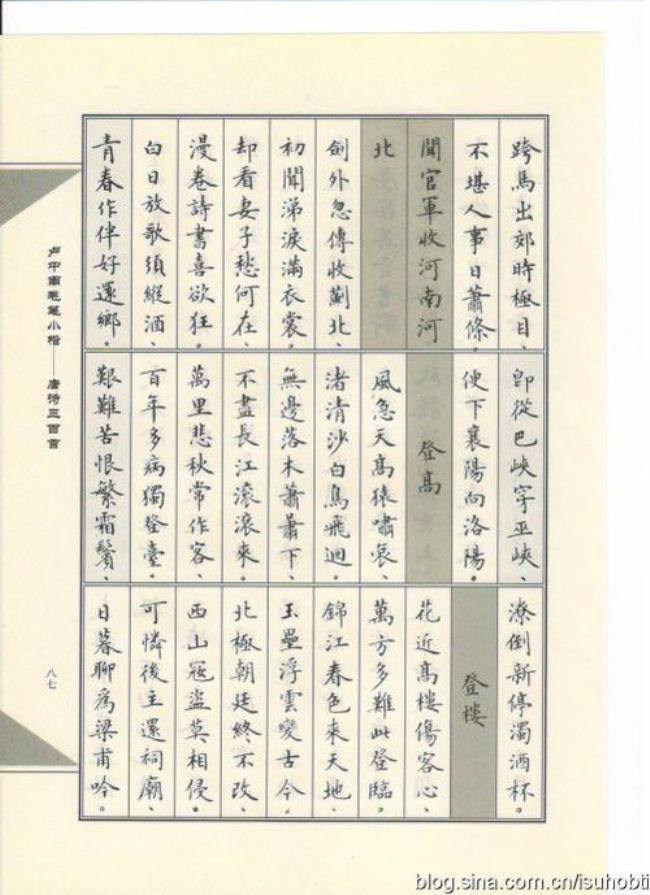 跨馬出郊時極目、
不堪人事日蕭條。
聞官軍收河南河
北
劍外忽傳收薊北、
初聞涕淚滿衣裳。
却看妻子愁何在、
漫卷詩書喜欲狂。
白日放歌須縱酒、
青春作伴好還鄉。
即從巴峽穿巫峽、
便下襄陽向洛陽。
登高
風急天高猿嘯哀、
渚清沙白鳥飛迴。
無邊落木蕭蕭下、
不盡長江滾滾來。
萬里悲秋常作客、
百年多病獨登臺。
艱難苦恨繁霜鬢、
潦倒新停濁酒杯。
登樓
花近高樓傷客心、
萬方多難此登臨。
錦江春色來天地、
玉壘浮雲變古今。
北極朝廷終不改、
西山寇盜莫相侵。
可憐後主還祠廟、
日暮聊爲梁甫吟。
卢中南毛笔小楷——唐诗三百首
八七
blog.sina.com.cn/isuhobti